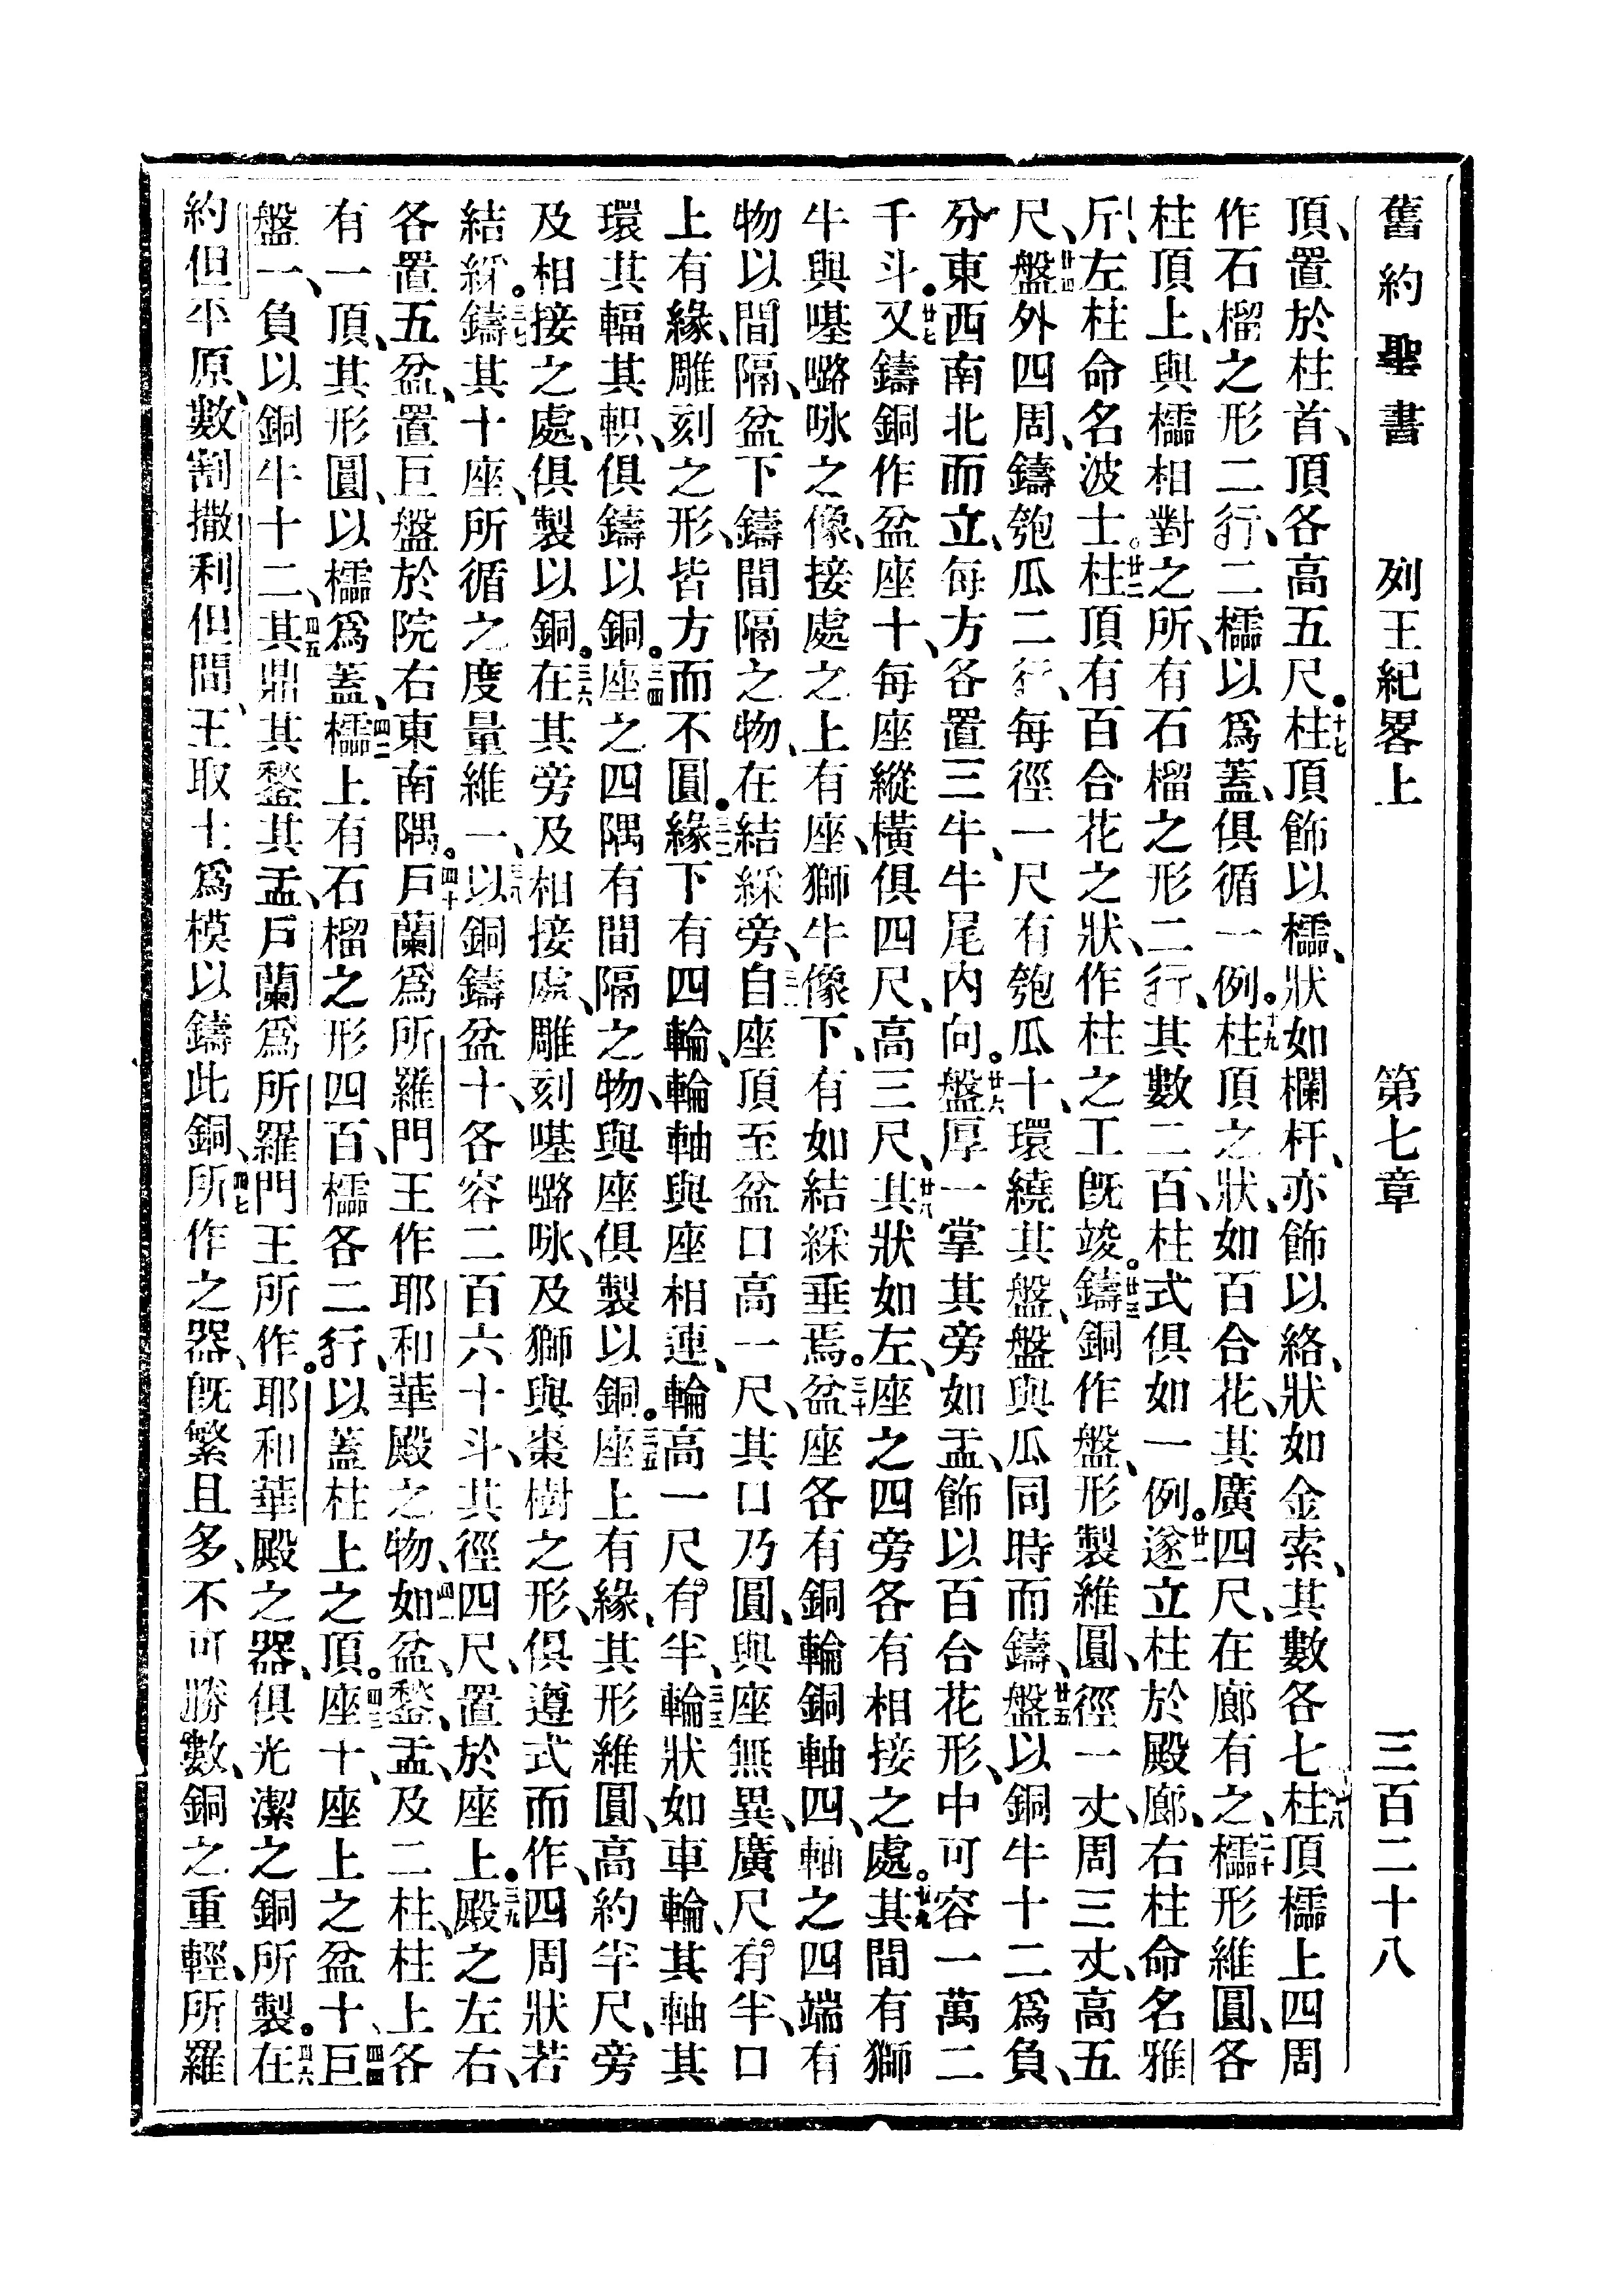 舊約聖書　列王紀畧上　第七章　三百二十八
頂、置於柱首、頂各高五尺。十七柱頂飾以櫺、狀如欄杆、亦飾以絡、狀如金索、其數各七、十八柱頂櫺上四周
作石榴之形二行、二櫺以爲蓋、俱循一例。十九柱頂之狀、如百合花、其廣四尺、在廊有之、二十櫺形維圓、各
柱頂上、與櫺相對之所、有石榴之形二行、其數二百、柱式俱如一例。廿一遂立柱於殿廊、右柱命名雅
斤、左柱命名波士。廿二柱頂有百合花之狀、作柱之工旣竣。廿三鑄銅作盤、形製維圓、徑一丈、周三丈、高五
尺、廿四盤外四周、鑄匏瓜二行、每徑一尺有匏瓜十、環繞其盤、盤與瓜同時而鑄、廿五盤以銅牛十二爲負、
分東西南北而立、每方各置三牛、牛尾內向。廿六盤厚一掌、其旁如盂、飾以百合花形、中可容一萬二
千斗。廿七又鑄銅作盆座十、每座縱橫俱四尺、高三尺、廿八其狀如左、座之四旁各有相接之處。廿九其間有獅
牛與𡀔㗝咏之像、接處之上有座、獅牛像下、有如結綵垂焉。三十盆座各有銅輪銅軸四、軸之四端有
物以間隔、盆下鑄間隔之物、在結綵旁、三一自座頂至盆口高一尺、其口乃圓、與座無異、廣尺有半、口
上有緣、雕刻之形、皆方而不圓。三二緣下有四輪、輪軸與座相連、輪高一尺有半、三三輪狀如車輪、其軸其
環其輻其軹、俱鑄以銅。三四座之四隅有間隔之物、與座俱製以銅。三五座上有緣、其形維圓、高約半尺、旁
及相接之處、俱製以銅。三六在其旁及相接處、雕刻𡀔㗝咏、及獅與棗樹之形、俱遵式而作、四周狀若
結綵。三七鑄其十座、所循之度量維一、三八以銅鑄盆十、各容二百六十斗、其徑四尺、置於座上。三九殿之左右、
各置五盆、置巨盤於院右東南隅。四十戶蘭爲所羅門王作耶和華殿之物、如四一盆、鍫、盂、及二柱、柱上各
有一頂、其形圓、以櫺爲蓋、四二櫺上有石榴之形四百、櫺各二行、以蓋柱上之頂。四三座十、座上之盆十、四四巨
盤一、負以銅牛十二、四五其鼎其鍫其盂、戶蘭爲所羅門王所作。耶和華殿之器、俱光潔之銅所製。四六在
約但平原、數割撒利但間、王取土爲模、以鑄此銅、四七所作之器、旣繁且多、不可勝數、銅之重輕、所羅